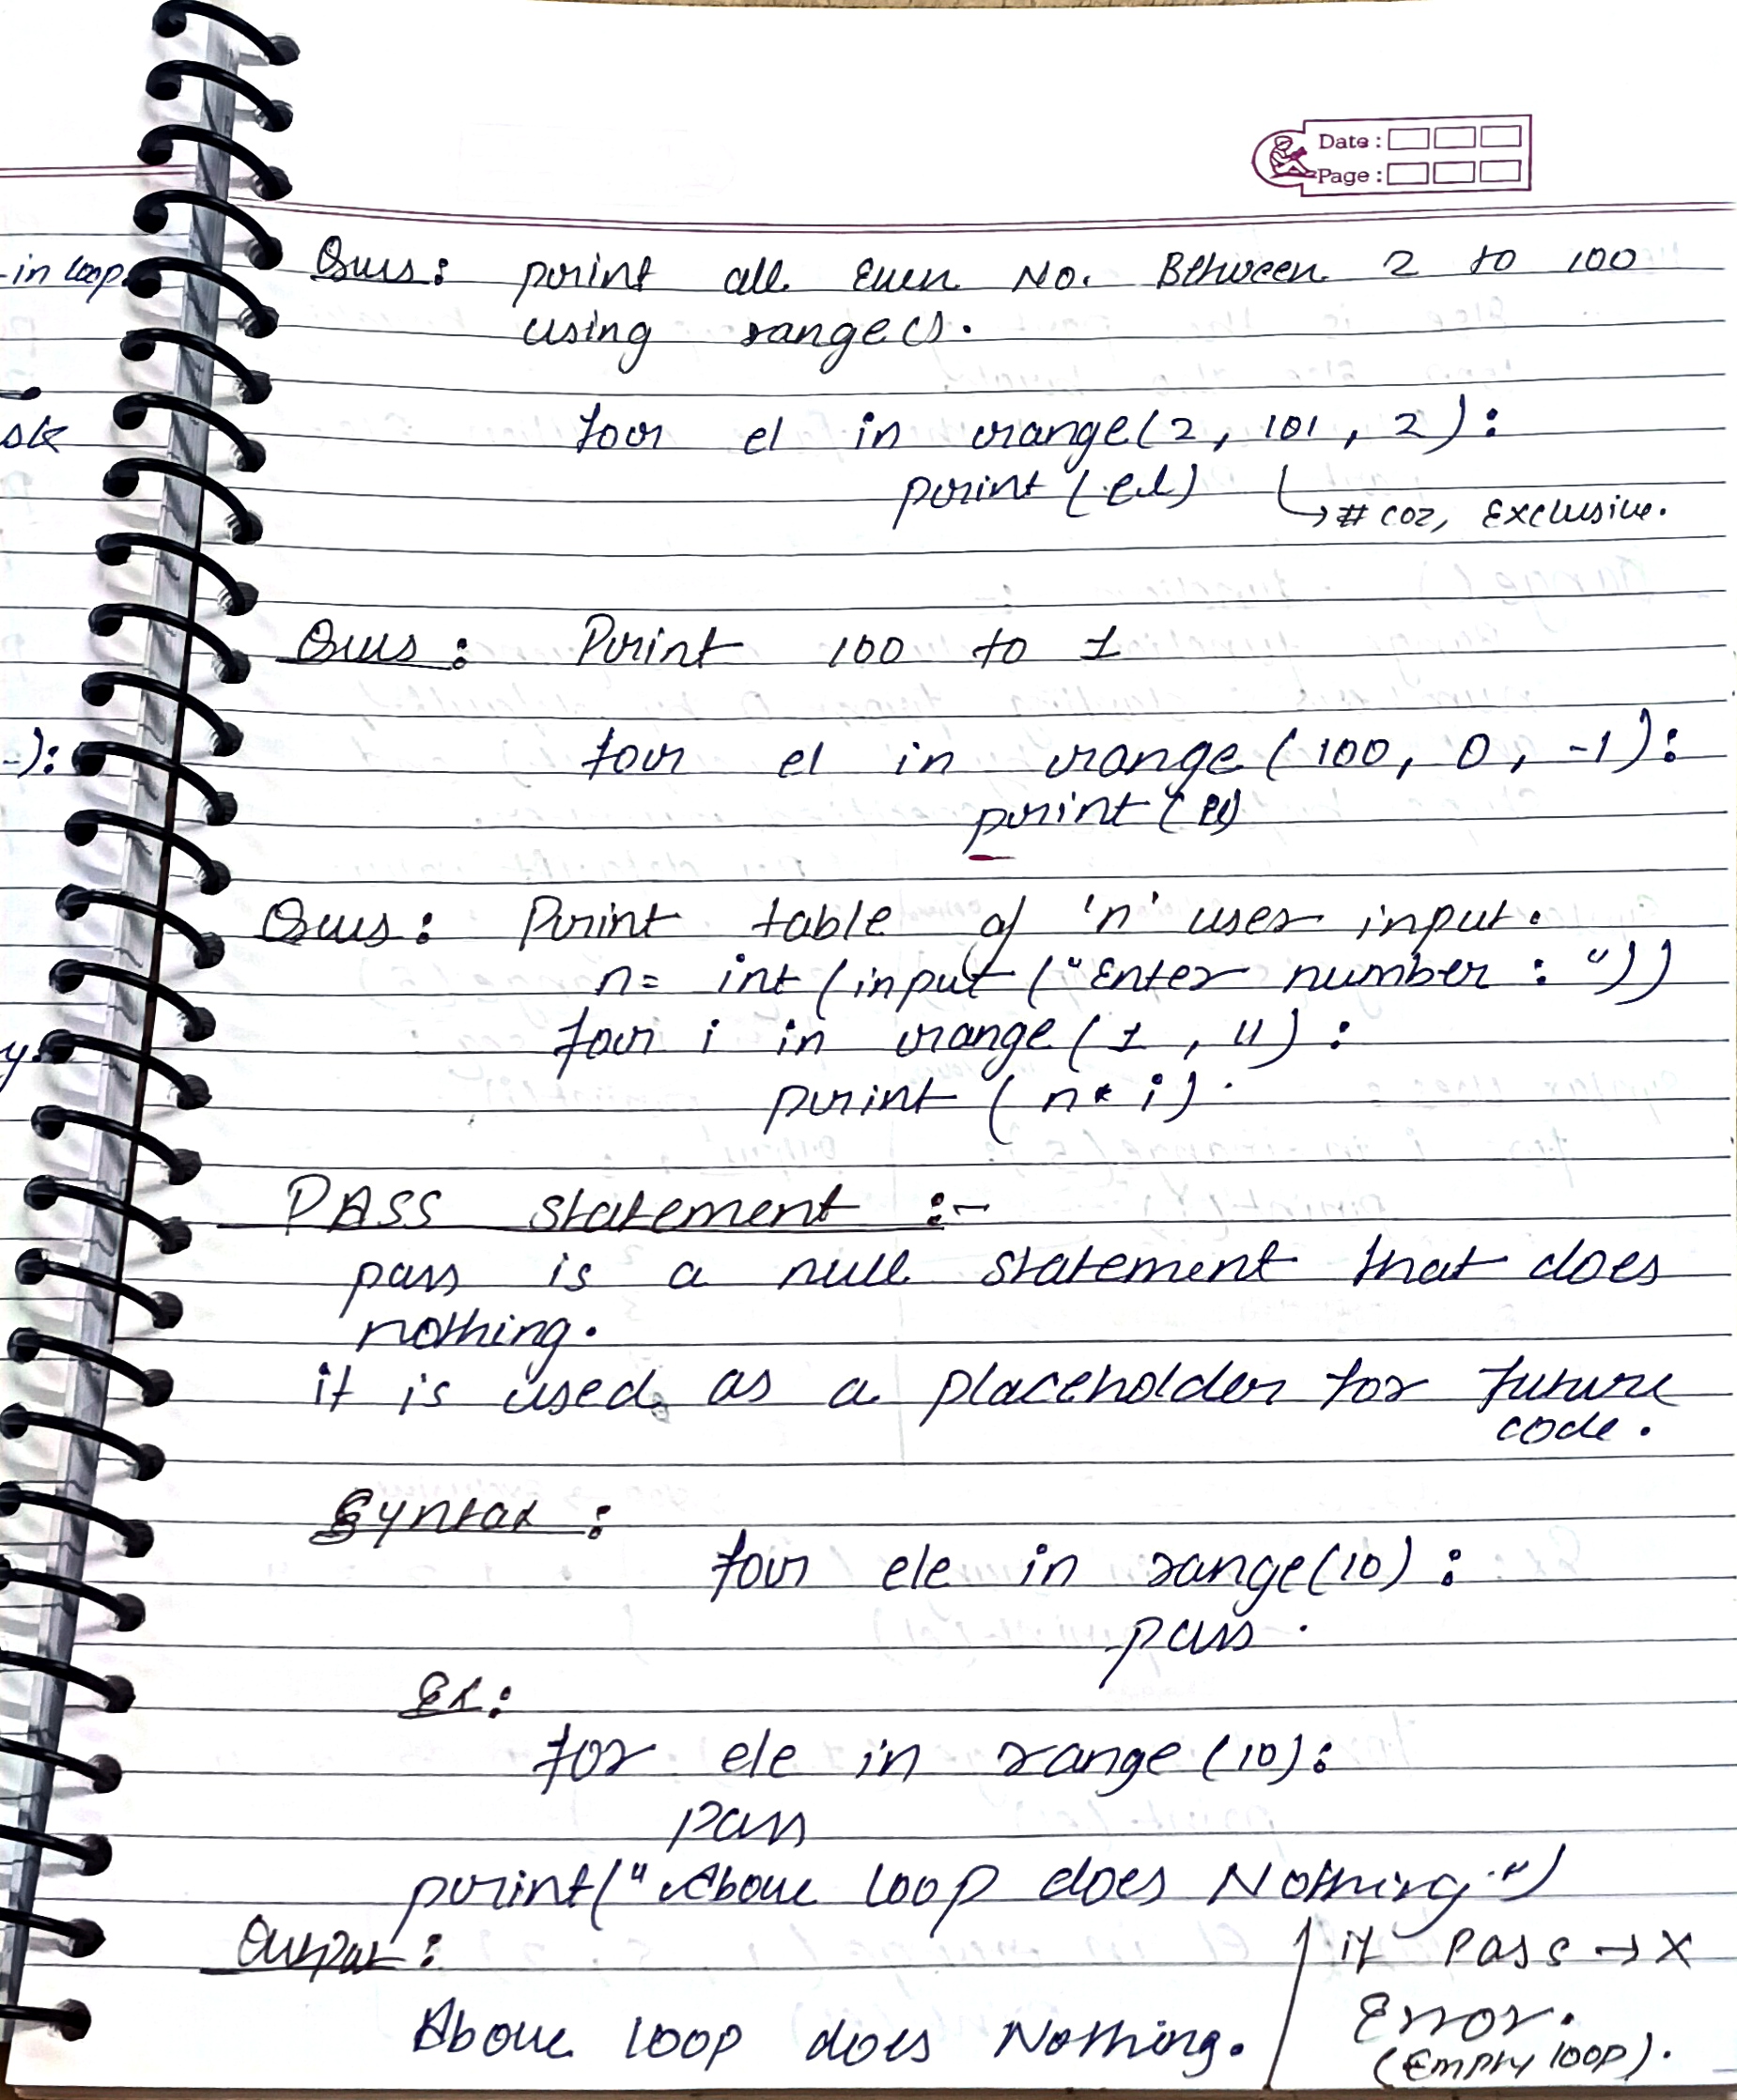 Date :
Page :
-in loop.
Ques: print all Even No. Between 2 to 100
using range().
for el in range(2, 101, 2):
print(el)
→ # coz, Exclusive.
Ques: Print 100 to 1
for el in range (100, 0, -1):
print(el)
Ques: Print table of 'n' user input.
n= int (input ("Enter number : "))
for i in range (1, 11):
print (n* i).
PASS statement :-
pass is a null statement that does
nothing.
it is used as a placeholder for future
code.
Syntax:
for ele in range(10):
pass.
Ex:
for ele in range (10):
pass
print("Above loop does Nothing.")
Output:
Above loop does Nothing.
if Pass → X
Error.
(Empty loop).